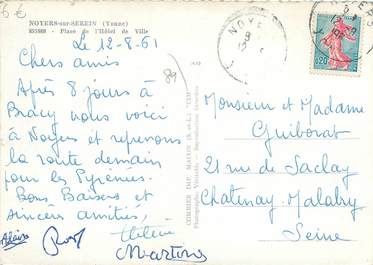 6€
NOYERS-sur-SEREIN (Yonne)
Place de l'Hôtel de Ville
Le 12-8-61
Chers amis
Après 8 jours à
Bracy nous voici
à Noyers et reprenons
la route demain
pour les Pyrénées.
Bons Baisers et
sincères amitiés,
Hélène
Martine
89
COMBIER IMP. MACON (S.-et-L.) "CIM"
NOYE
0,20
Monsieur et Madame
Guiborat
21 rue de Saclay
Chatenay-Malabry
Seine